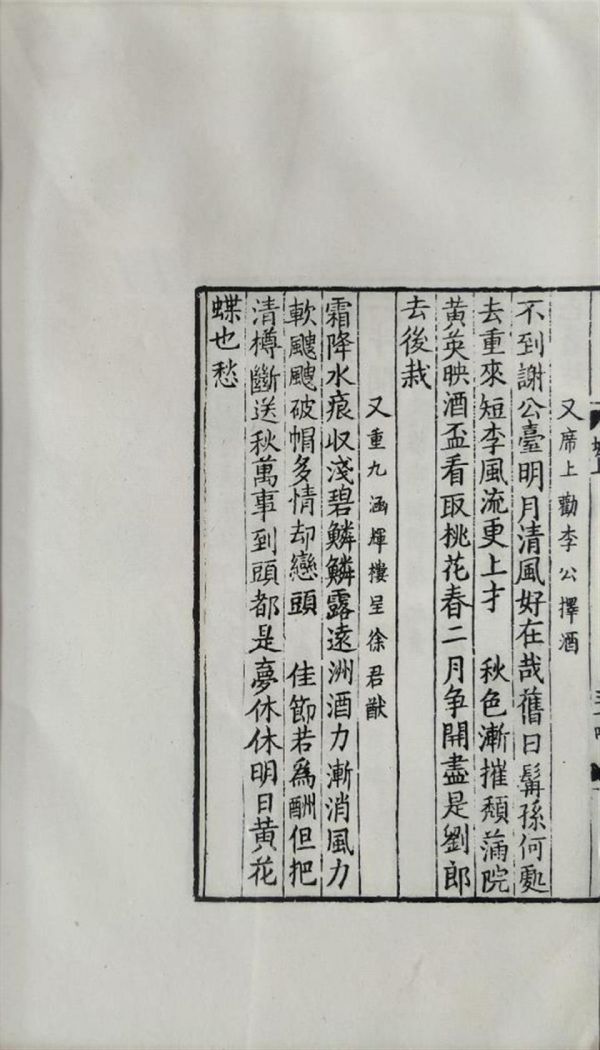 又席上勸李公擇酒
不到謝公臺明月清風好在哉舊日髯孫何處
去重來短李風流更上才　秋色漸摧頹滿院
黃英映酒盃看取桃花春二月爭開盡是劉郎
去後栽
又重九涵輝樓呈徐君猷
霜降水痕収淺碧鱗鱗露遠洲酒力漸消風力
軟颼颼破帽多情却戀頭　佳節若爲酬但把
清樽斷送秋萬事到頭都是夢休休明日黃花
蝶也愁